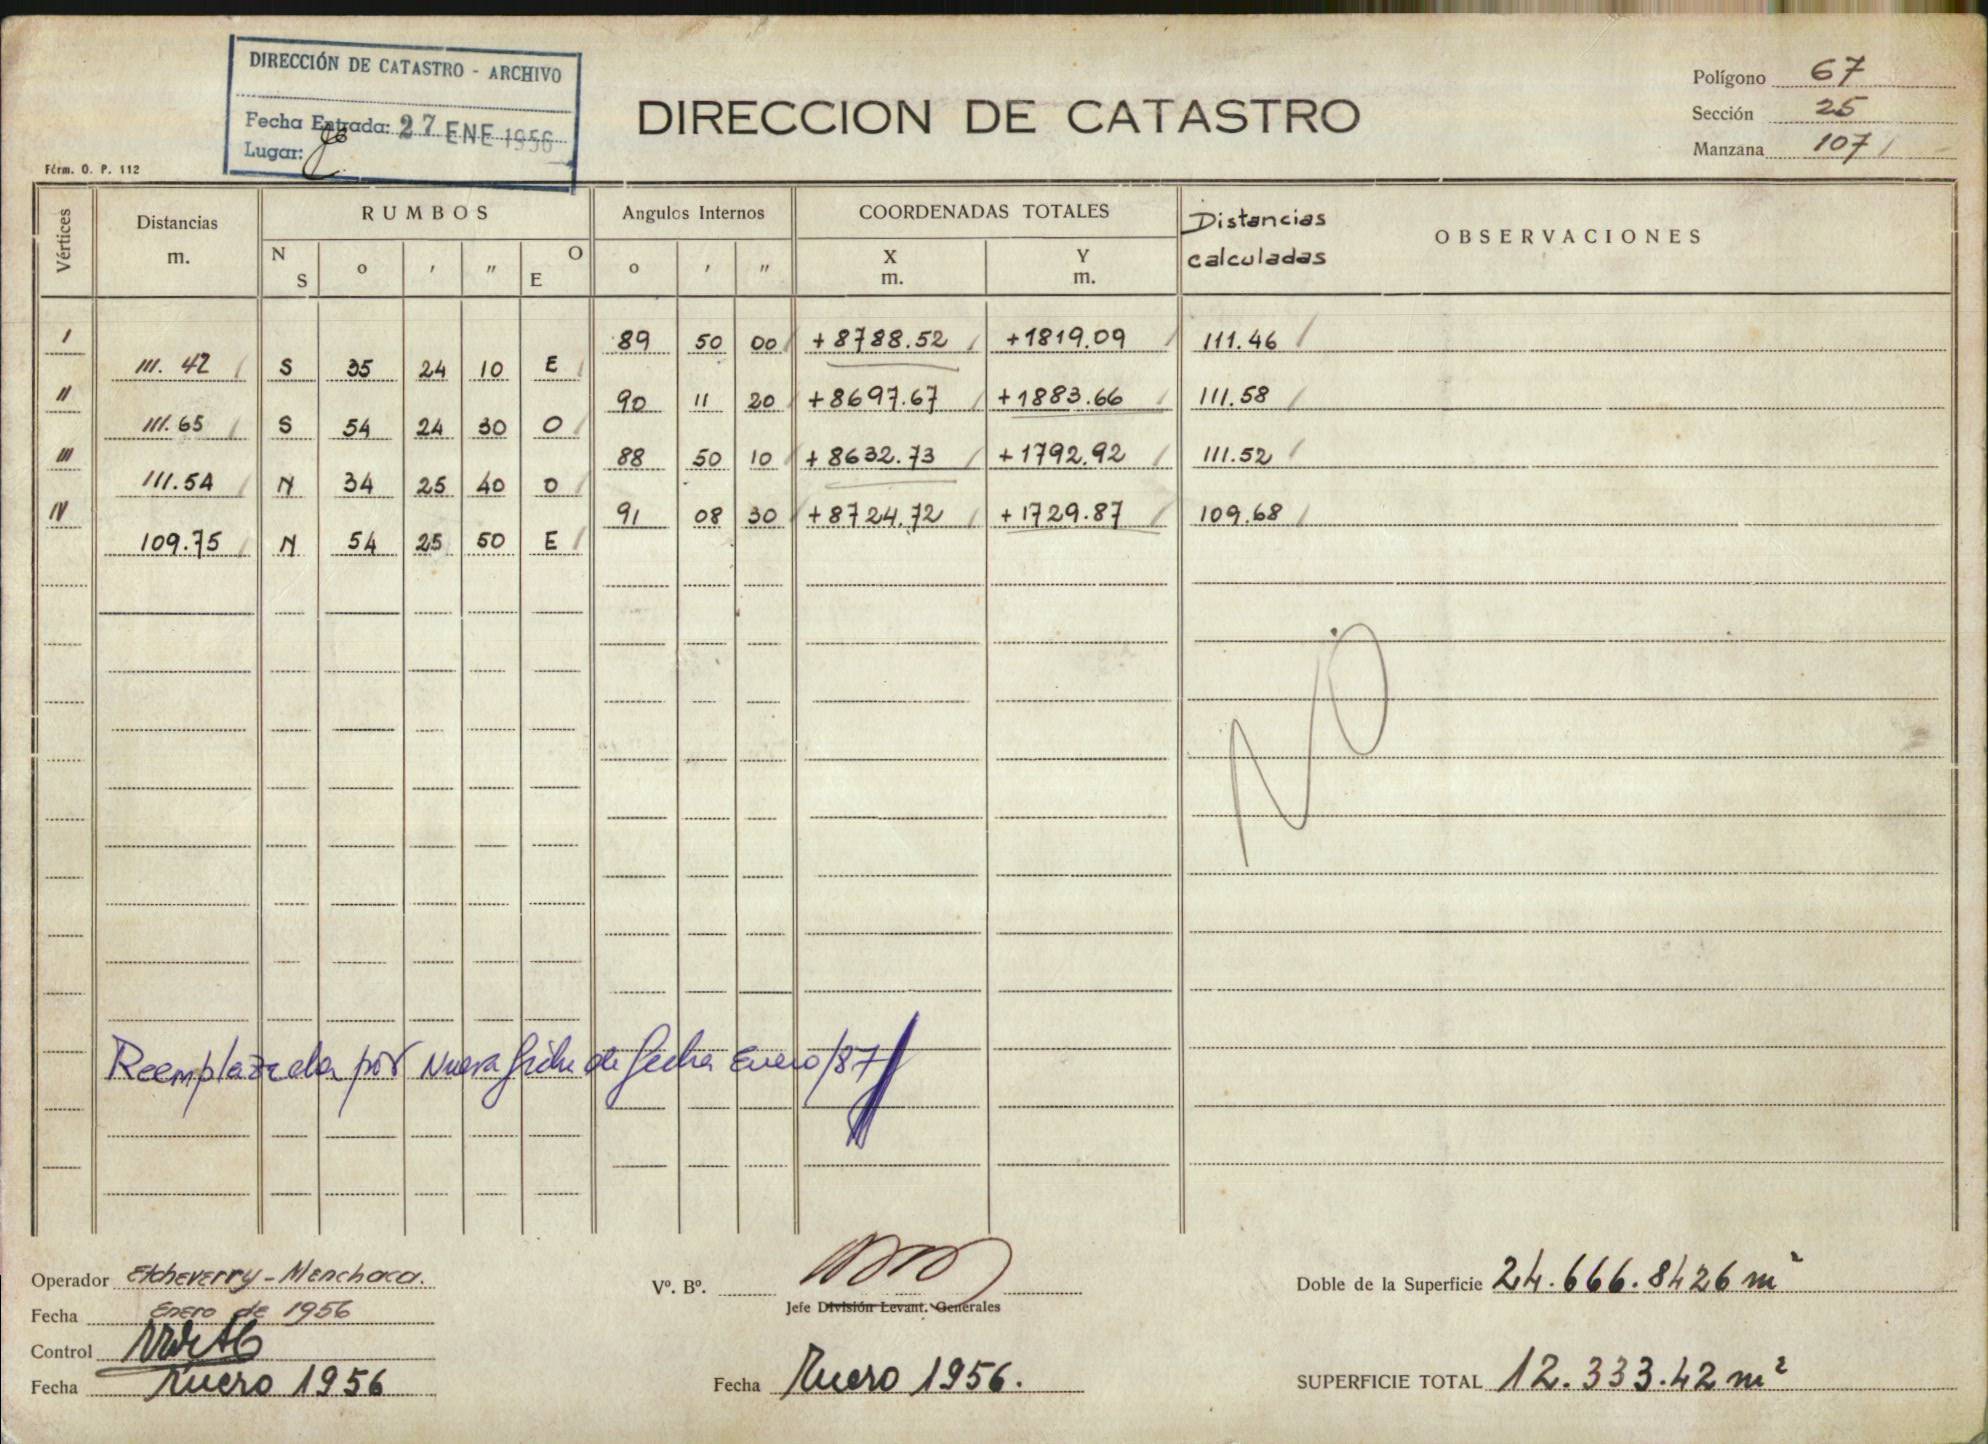 DIRECCIÓN DE CATASTRO - ARCHIVO
Fecha Entrada: 27 ENE 1956
Lugar:
DIRECCION DE CATASTRO
Polígono 67
Sección 25
Manzana 107
Fórm. O. P. 112
Vértices
Distancias
m.
RUMBOS
N S o ' " O E
Angulos Internos
o ' "
COORDENADAS TOTALES
X
m.
Y
m.
Distancias
calculadas
OBSERVACIONES
I 89 50 00 +8788.52 +1819.09 111.46
111.42 S 35 24 10 E
II 90 11 20 +8697.67 +1883.66 111.58
111.65 S 54 24 30 O
III 88 50 10 +8632.73 +1792.92 111.52
111.54 N 34 25 40 O
IV 91 08 30 +8724.72 +1729.87 109.68
109.75 N 54 25 50 E
NO
Reemplazada por Nueva ficha de fecha Enero/87
Operador Etcheverry - Menchaca.
Fecha Enero de 1956
Control
Fecha Enero 1956
Vº. Bº.
Jefe División Levant. Generales
Fecha Enero 1956.
Doble de la Superficie 24.666.8426 m²
SUPERFICIE TOTAL 12.333.42 m²